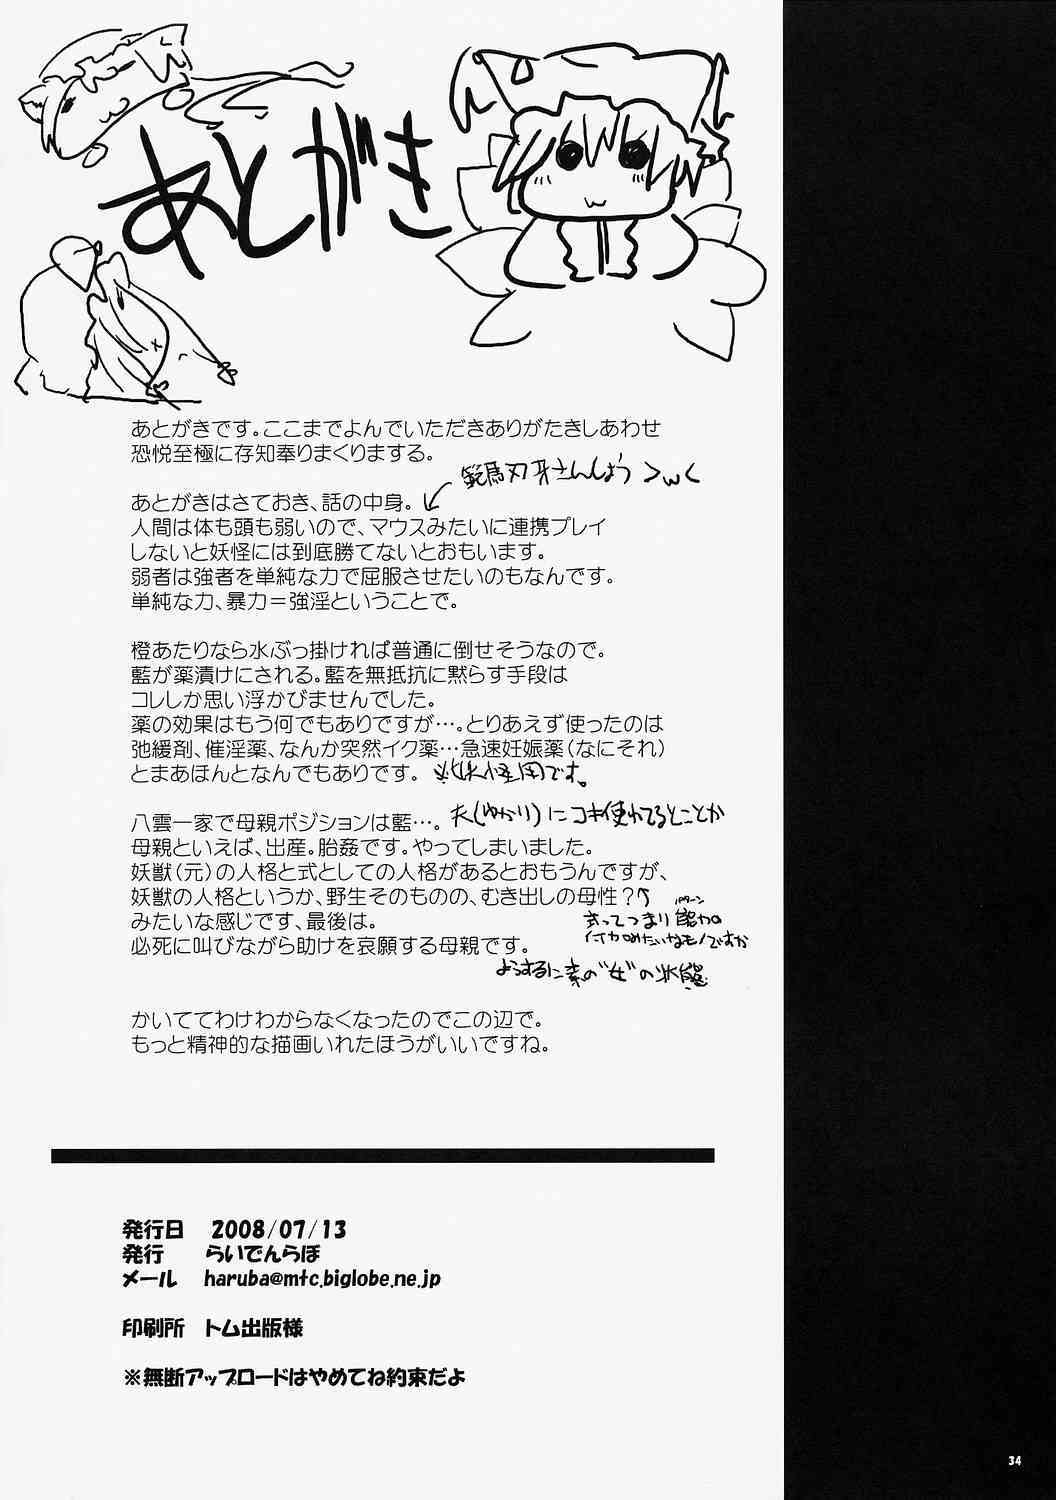 あとがき
あとがきです。ここまでよんでいただきありがたきしあわせ
恐悦至極に存知奉りまくりまする。
範馬刃牙さんしょう >w<
あとがきはさておき、話の中身。
人間は体も頭も弱いので、マウスみたいに連携プレイ
しないと妖怪には到底勝てないとおもいます。
弱者は強者を単純な力で屈服させたいのもなんです。
単純な力、暴力＝強淫ということで。
橙あたりなら水ぶっ掛ければ普通に倒せそうなので。
藍が薬漬けにされる。藍を無抵抗に黙らす手段は
コレしか思い浮かびませんでした。
薬の効果はもう何でもありですが…。とりあえず使ったのは
弛緩剤、催淫薬、なんか突然イク薬…急速妊娠薬（なにそれ）
とまあほんとなんでもありです。
※妖怪用です。
八雲一家で母親ポジションは藍…。
夫(ゆかり)にコキ使われてるとことか
母親といえば、出産。胎姦です。やってしまいました。
妖獣（元）の人格と式としての人格があるとおもうんですが、
妖獣の人格というか、野生そのものの、むき出しの母性？
パターン
式ってつまり能力の
付加みたいなモノですか
みたいな感じです、最後は。
必死に叫びながら助けを哀願する母親です。
ようするに素の"女"の状態
かいててわけわからなくなったのでこの辺で。
もっと精神的な描画いれたほうがいいですね。
発行日 2008/07/13
発行 らいでんらぼ
メール haruba@mtc.biglobe.ne.jp
印刷所 トム出版様
※無断アップロードはやめてね約束だよ
34